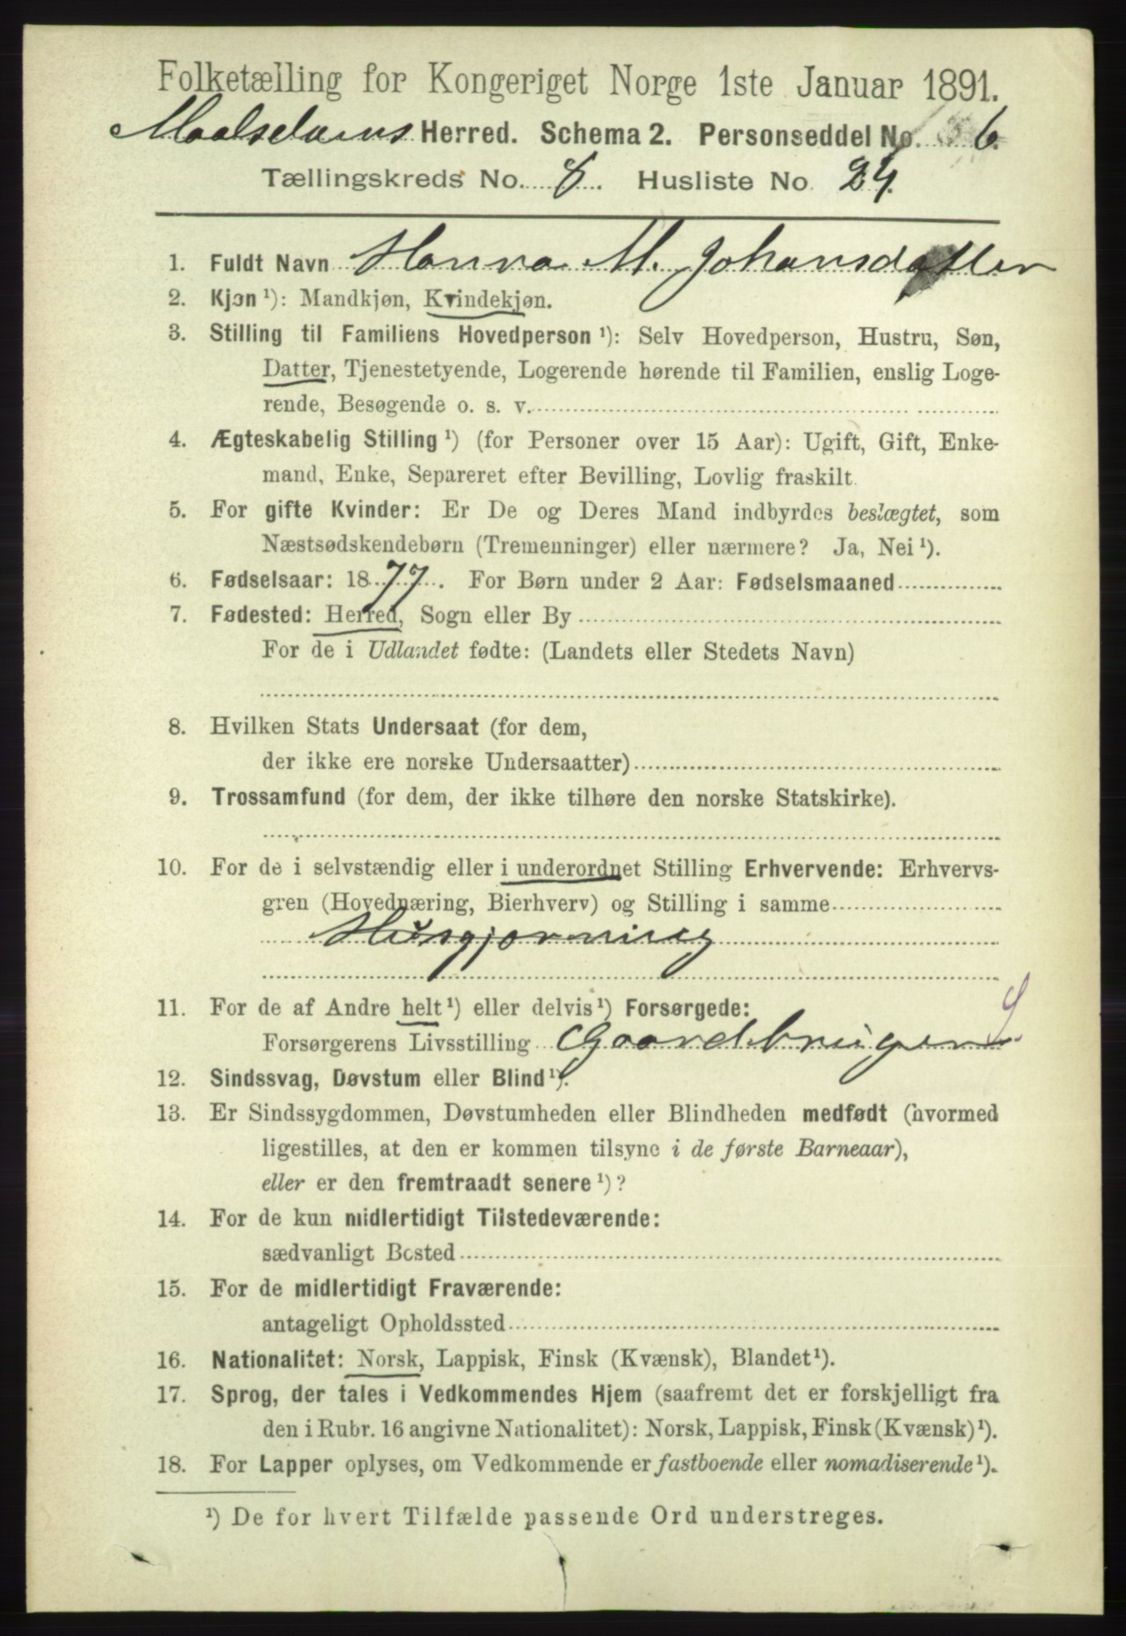 Folketælling for Kongeriget Norge 1ste Januar 1891.
Maalselvens Herred. Schema 2. Personseddel No. 6.
Tællingskreds No. 8. Husliste No 24.
1. Fuldt Navn Hanna M. Johansdatter
2. Kjøn ¹): Mandkjøn, Kvindekjøn.
3. Stilling til Familiens Hovedperson ¹): Selv Hovedperson, Hustru, Søn,
Datter, Tjenestetyende, Logerende hørende til Familien, enslig Loge-
rende, Besøgende o. s. v.
4. Ægteskabelig Stilling ¹) (for Personer over 15 Aar): Ugift, Gift, Enke-
mand, Enke, Separeret efter Bevilling, Lovlig fraskilt.
5. For gifte Kvinder: Er De og Deres Mand indbyrdes beslægtet, som
Næstsødskendebørn (Tremenninger) eller nærmere? Ja, Nei ¹).
6. Fødselsaar: 1877. For Børn under 2 Aar: Fødselsmaaned
7. Fødested: Herred, Sogn eller By
For de i Udlandet fødte: (Landets eller Stedets Navn)
8. Hvilken Stats Undersaat (for dem,
der ikke ere norske Undersaatter)
9. Trossamfund (for dem, der ikke tilhøre den norske Statskirke).
10. For de i selvstændig eller i underordnet Stilling Erhvervende: Erhvervs-
gren (Hovednæring, Bierhverv) og Stilling i samme
Husgjerning
11. For de af Andre helt ¹) eller delvis ¹) Forsørgede:
Forsørgerens Livsstilling Gaardbruger
12. Sindssvag, Døvstum eller Blind ¹).
13. Er Sindssygdommen, Døvstumheden eller Blindheden medfødt (hvormed
ligestilles, at den er kommen tilsyne i de første Barneaar),
eller er den fremtraadt senere ¹)?
14. For de kun midlertidigt Tilstedeværende:
sædvanligt Bosted
15. For de midlertidigt Fraværende:
antageligt Opholdssted
16. Nationalitet: Norsk, Lappisk, Finsk (Kvænsk), Blandet ¹).
17. Sprog, der tales i Vedkommendes Hjem (saafremt det er forskjelligt fra
den i Rubr. 16 angivne Nationalitet): Norsk, Lappisk, Finsk (Kvænsk) ¹).
18. For Lapper oplyses, om Vedkommende er fastboende eller nomadiserende ¹).
¹) De for hvert Tilfælde passende Ord understreges.